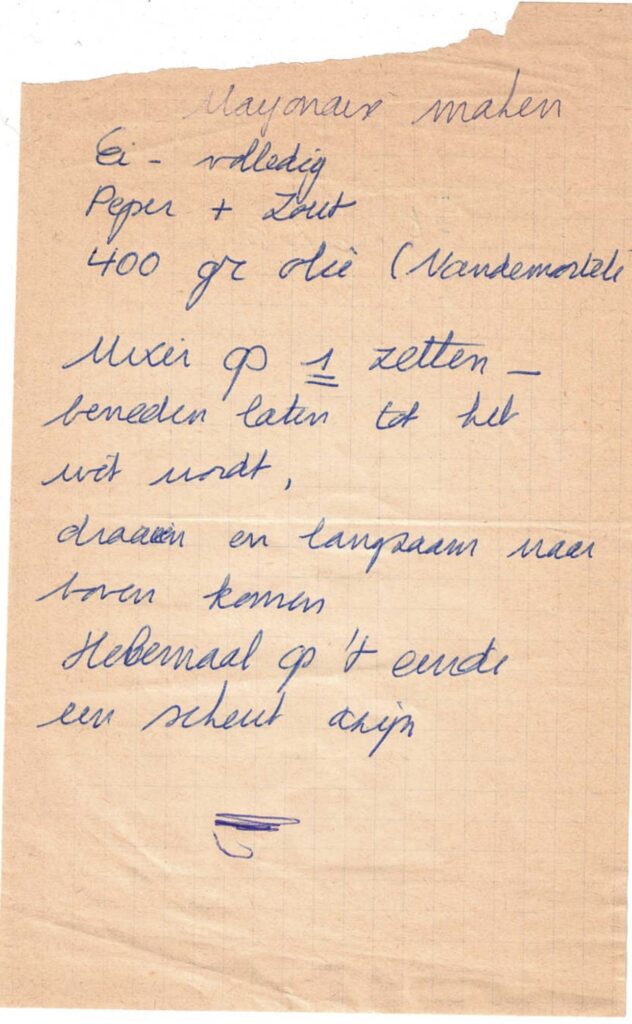 Mayonaix maken
Ei - volledig
Peper + Zout
400 gr olie (Vandemortele
Mixer op 1 zetten -
beneden laten tot het
wit wordt,
draaien en langzaam naar
boven komen
Helemaal op 't einde
een scheut azijn